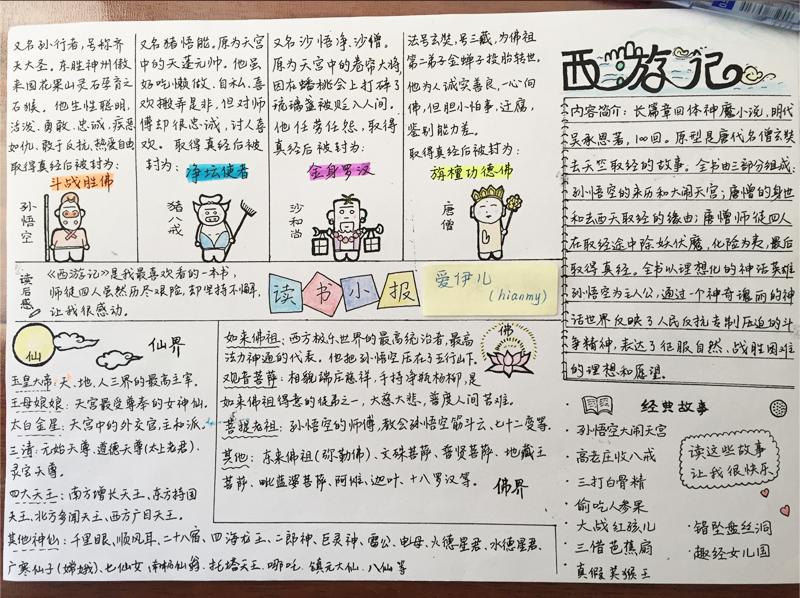 又名孙行者,号称齐
天大圣。东胜神州傲
来国花果山灵石孕育之
石猴。他生性聪明,
活泼、勇敢、忠诚,疾恶
如仇,敢于反抗,热爱自由
取得真经后被封为:
斗战胜佛
孙悟空
又名猪悟能。原为天宫
中的天蓬元帅。他虽
好吃懒做、自私、喜
欢搬弄是非,但对师
傅却很忠诚,讨人喜
欢。取得真经后被
封为:净坛使者
猪八戒
又名沙悟净、沙僧。
原为天宫中的卷帘大将,
因在蟠桃会上打碎了
琉璃盏被贬入人间。
他任劳任怨,取得
真经后被封为:
金身罗汉
沙和尚
法号玄奘,号三藏,为佛祖
第二弟子金蝉子投胎转世。
他为人诚实善良,一心向
佛,但胆小怕事,迂腐,
鉴别能力差。
取得真经后被封为:
旃檀功德佛
唐僧
西游记
内容简介:长篇章回体神魔小说,明代
吴承恩著,100回。原型是唐代名僧玄奘
去天竺取经的故事。全书由三部分组成:
孙悟空的来历和大闹天宫;唐僧的身世
和去西天取经的缘由;唐僧师徒四人
在取经途中除妖伏魔,化险为夷,最后
取得真经。全书以理想化的神话英雄
孙悟空为主人公,通过一个神奇瑰丽的神
话世界反映了人民反抗专制压迫的斗
争精神,表达了征服自然、战胜困难
的理想和愿望。
读后感
《西游记》是我最喜欢看的一本书,
师徒四人虽然历尽艰险,却坚持不懈,
让我很感动。
读书小报
爱伊儿
(hianmy)
仙
仙界
玉皇大帝:天、地、人三界的最高主宰。
王母娘娘:天宫最受尊奉的女神仙。
太白金星:天宫中的外交官,主和派。
三清:元始天尊、道德天尊(太上老君)、
灵宝天尊。
四大天王:南方增长天王、东方持国
天王、北方多闻天王、西方广目天王。
其他神仙:千里眼、顺风耳、二十八宿、四海龙王、二郎神、巨灵神、雷公、电母、火德星君、水德星君、
广寒仙子(嫦娥)、七仙女、南极仙翁、托塔天王、哪吒、镇元大仙、八仙等
如来佛祖:西方极乐世界的最高统治者,最高
法力神通的代表。他把孙悟空压在了五行山下。
观音菩萨:相貌端庄慈祥,手持净瓶杨柳,是
如来佛祖得意的徒弟之一,大慈大悲、普度人间苦难。
菩提老祖:孙悟空的师傅,教会孙悟空筋斗云、七十二变等。
其他:东来佛祖(弥勒佛)、文殊菩萨、普贤菩萨、地藏王
菩萨、毗蓝婆菩萨、阿傩、迦叶、十八罗汉等。
佛界
佛
经典故事
· 孙悟空大闹天宫
· 高老庄收八戒
· 三打白骨精
· 偷吃人参果
· 大战红孩儿
· 三借芭蕉扇
· 真假美猴王
· 错坠盘丝洞
· 趣经女儿国
读这些故事
让我很快乐